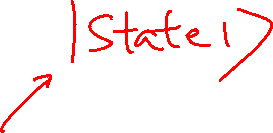 |State1⟩